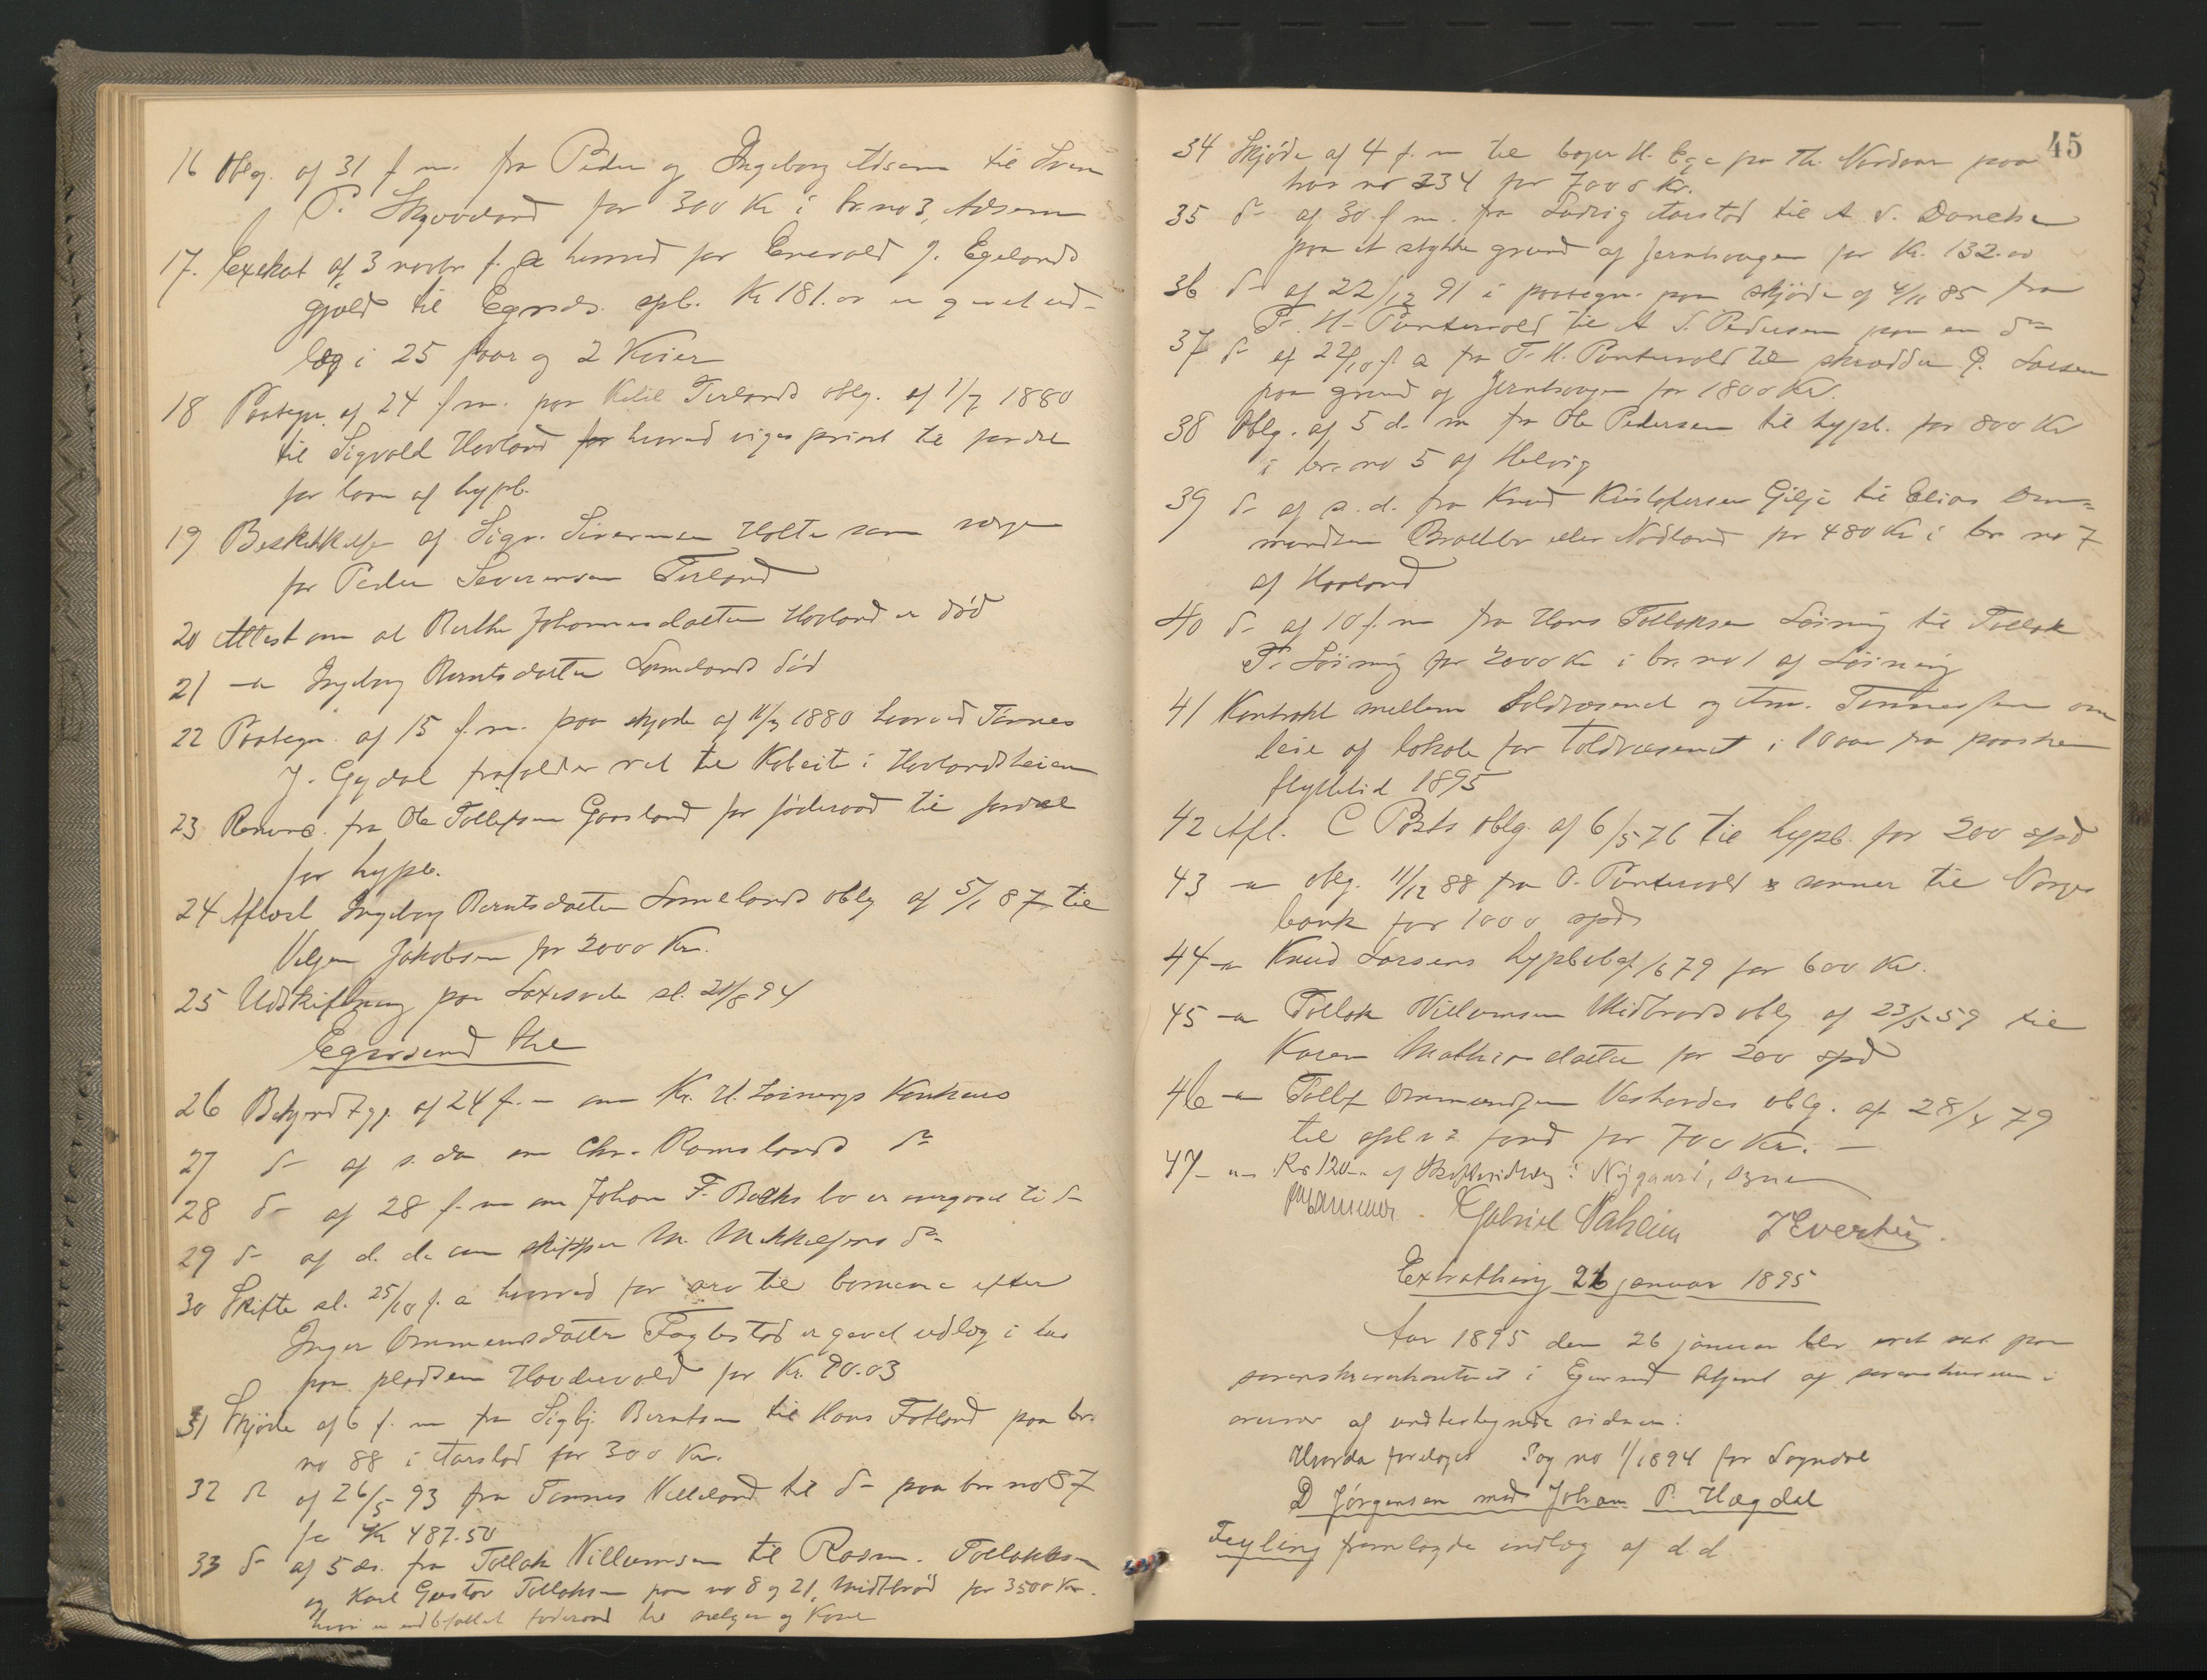 16 Oblg. af 31 f. m. fra Peder og Ingeborg Adsem til Sven
P. Skyvoland for 300 Kr i br. no 3, Adsem
17. Exekut af 3 novbr f. a hvorved for Enevold J. Egelands
gjæld til Egersds. spb. Kr 181.00 er gjort ud-
læg i 25 faar og 2 Kvier
18 Paategn. af 24 f. m. paa Ketil Terlands oblg. af 1/7 1880
til Sigvald Hovland hvorved viges priort. til fordel
for laan af hypb.
19 Beskikkelse af Sigv. Sivertsen Holte som værge
for Peder Severinsen Terland
20 Attest om at Berthe Johannesdatter Hovland er død
21 -"- Ingeborg Berntsdatter Lomeland død
22 Paategn. af 15 f. m. paa skjøde af 11/3 1880 hvorved Tønnes
J. Gydal frafalder ret til Kobeite i Hovlandsheien
23 Renunc. fra Ole Tollefsen Gaasland for føderaad til fordel
for hypb.
24 Aflæst Ingeborg Berntsdatter Lomelands oblg af 5/1 87 til
Jakobsen for 2000 Kr.
25 Udskiftning paa sl. 21/8 94
Egersund
26 Bekjendtgj. af 24 f. m om Kr. H. Løinings Konkurs
27 d- af s. da om Chr. Romslands do
28 d- af 28 f. m om Johan F. Becks bo er overgaaet til d-
29 d- af d. da om skipper M. Mikkelsens do
30 Skifte sl. 25/10 f. a hvorved for arv til børnene efter
Inger Ommundsdatter Fuglestad er gjort udlæg i hus
paa pladsen Havdervold for Kr. 90.03
31 Skjøde af 6 f. m fra Sigbj. Berntsen til Hans Fotland paa br.
no 88 i Aarstad for 300 Kr.
32 do af 26/5 93 fra Tønnes Velleland til d- paa br no 87
for Kr 487.50
33 d- af 5 ds. fra Tollak Villumsen til Rasm. Tollaksen
og Karl Gustav Tollaksen paa no 8 og 21, Midtbrød for 3500 Kr.
hvori er indbefattet føderaad til sælgeren og Kone
45
34 Skjøde af 4 f. m til bager H. Ege fra Th. paa
hus no 234 for 7000 Kr.
35 d- af 30 f m. fra Ludvig Aarstad til A S. Danelsen
paa et stykke grund af Jernhaagen for Kr. 132.00
36 d- af 22/12 91 i paategn. paa skjøde af 4/11 85 fra
T. H. Puntervold til A S. Pedersen paa en do
37 d- af 22/10 f. a fra T. H. Puntervold til skrædder P. Larsen
paa grund af Jernhaagen for 1800 Kr.
38 Oblg. af 5 d. m fra Ole Pedersen til hypb. for 800 Kr
i br. no 5 af Helvig
39 d- af s. d. fra Knud Kristofersen Gilje til Elias Om-
mundsen Bratlebø eller Nodland for 480 Kr i br no 7
af Hovland
40 d- af 10 f. m fra Hans Tollaksen Løining til Tollak
T. Løining for 2000 Kr i br. no 1 af Løining
41 Kontrakt mellem toldvæsenet og Am. Tønnessen om
leie af lokale for toldvæsenet i 10 aar fra paaske
flyttetid 1895
42 Afl. C Posts oblg. af 6/5 76 til hypb. for 200 spd
43 -"- oblg. 11/12 88 fra O. Puntervold & sønner til Norges
bank for 1000 spd
44 -"- Knud Larsens hypb 79 for 600 Kr.
45 -"- Tollak Villumsen Midbrøds oblg af 23/5 59 til
Karen Mathiasdatter for 200 spd
46 -"- Tollef Ommundsen oblg. af 28/4 79
til fond for 700 Kr. —
47 -"- Kr 120 af i Nygaard, Ogna
Gabriel Vaheim J Evertsen.
Extrathing 26 januar 1895
Aar 1895 den 26 januar blev ret sat paa
sorenskriverkontoret i Egersund betjent af sorenskriveren i
overvær af undertegnede vidner:
Hvorda foretoges Sag no 1/1894 for Sogndal
D Jørgensen mod Johan P. Hægdal
Feyling fremlagde indlæg af d.d